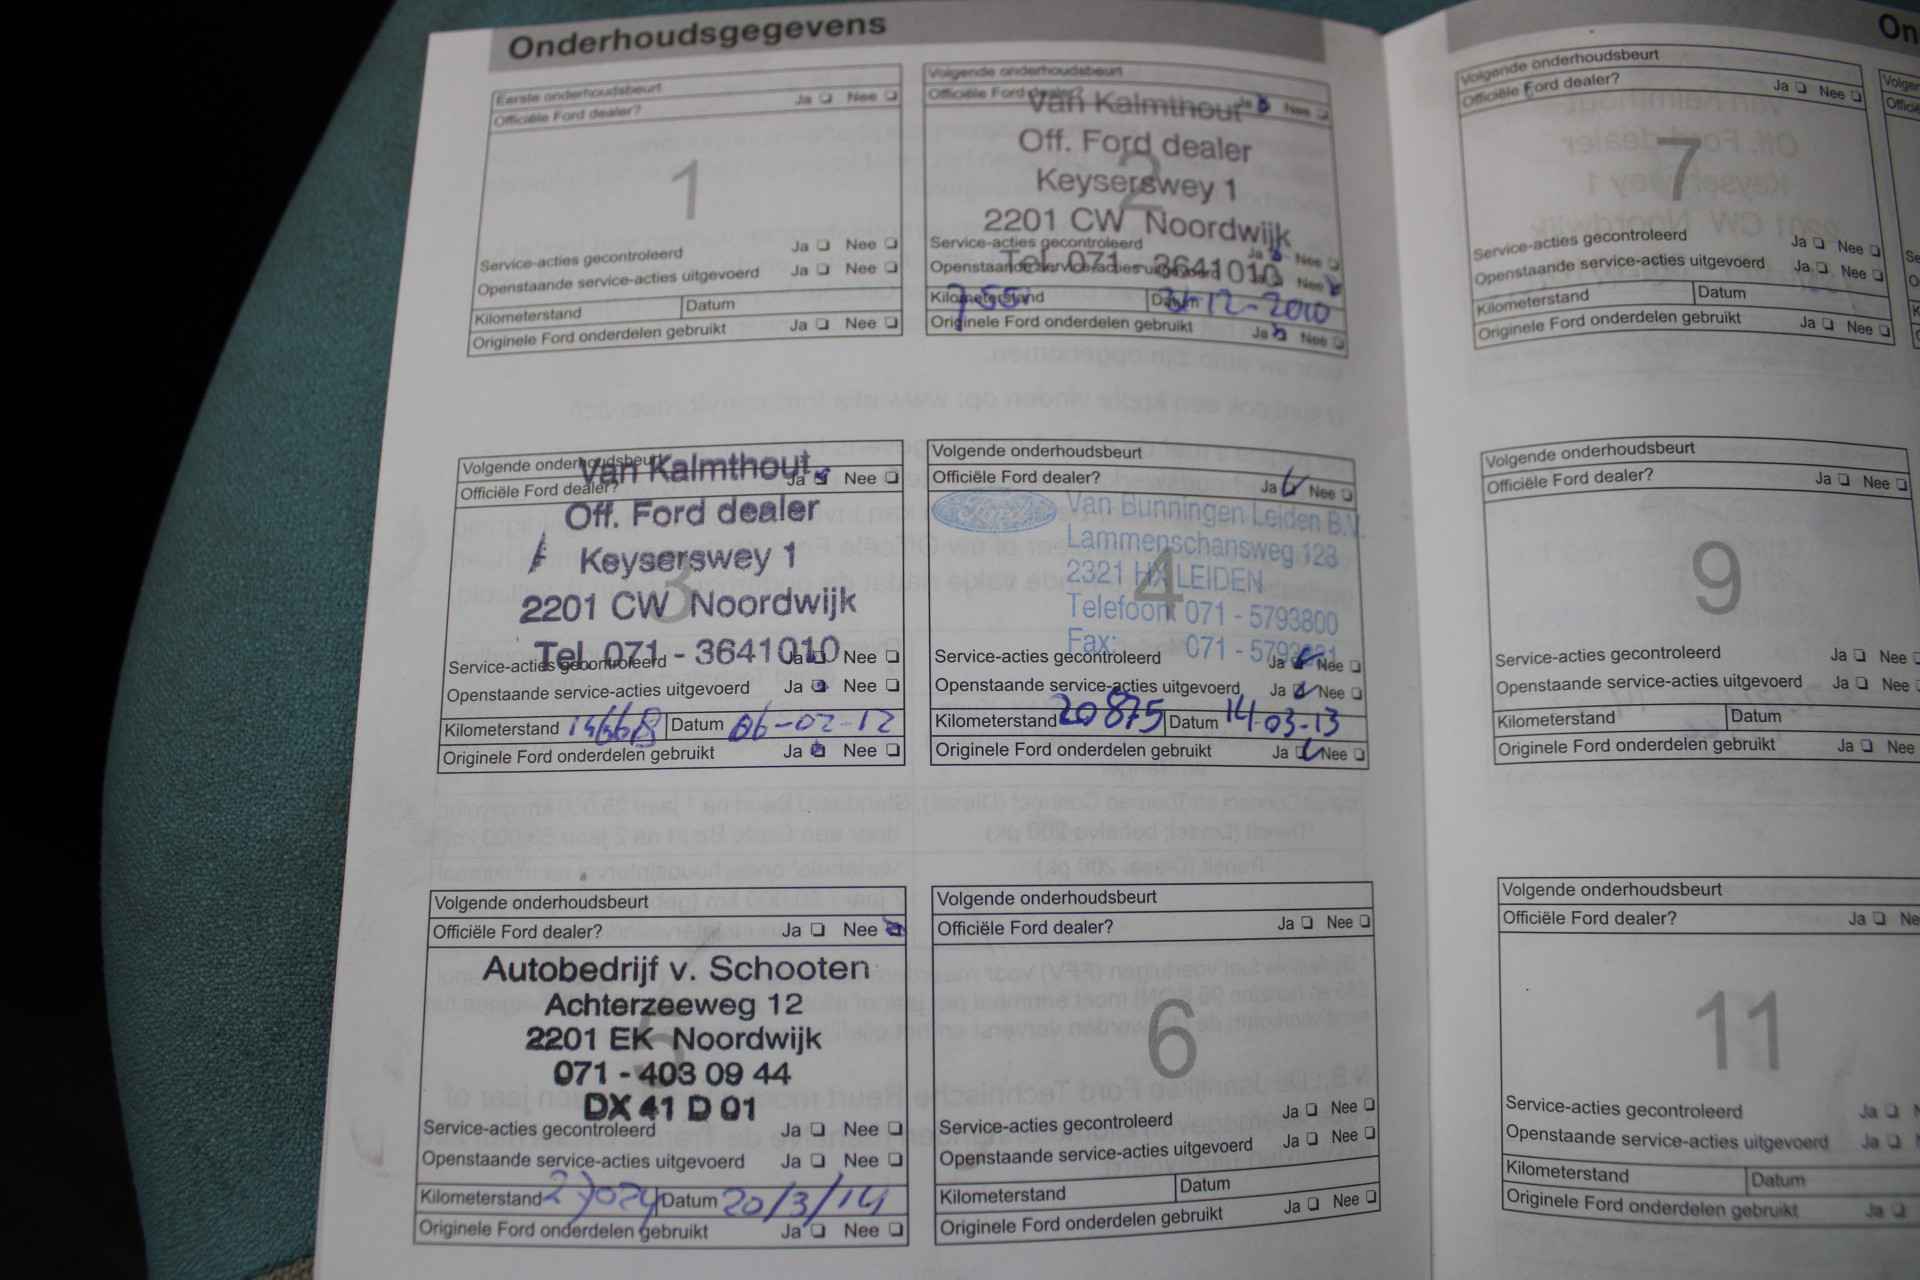 Onderhoudsgegevens
Eerste onderhoudsbeurt
Officiële Ford dealer? Ja Nee
1
Service-acties gecontroleerd Ja Nee
Openstaande service-acties uitgevoerd Ja Nee
Kilometerstand Datum
Originele Ford onderdelen gebruikt Ja Nee
Volgende onderhoudsbeurt
Officiële Ford dealer? Ja Nee
Van Kalmthout
Off. Ford dealer
2
Keyserswey 1
2201 CW Noordwijk
Service-acties gecontroleerd Ja Nee
Tel. 071 - 3641010
Openstaande service-acties uitgevoerd Nee
Kilometerstand Datum 12-2010
Originele Ford onderdelen gebruikt Ja Nee
Volgende onderhoudsbeurt
Van Kalmthout
Officiële Ford dealer? Ja Nee
Off. Ford dealer
Keyserswey 1
3
2201 CW Noordwijk
Tel. 071 - 3641010
Service-acties gecontroleerd Ja Nee
Openstaande service-acties uitgevoerd Ja Nee
Kilometerstand Datum 06-02-12
Originele Ford onderdelen gebruikt Ja Nee
Volgende onderhoudsbeurt
Officiële Ford dealer? Ja Nee
Van Bunningen Leiden B.V.
Lammenschansweg 128
2321 HX LEIDEN
4
Telefoon: 071 - 5793800
Fax: 071 -
Service-acties gecontroleerd Ja Nee
Openstaande service-acties uitgevoerd Ja Nee
Kilometerstand 20875 Datum 14-03-13
Originele Ford onderdelen gebruikt Ja Nee
Volgende onderhoudsbeurt
Officiële Ford dealer? Ja Nee
Autobedrijf v. Schooten
Achterzeeweg 12
2201 EK Noordwijk
5
071 - 403 09 44
DX 41 D 01
Service-acties gecontroleerd Ja Nee
Openstaande service-acties uitgevoerd Ja Nee
Kilometerstand Datum 20/3/14
Originele Ford onderdelen gebruikt Ja Nee
Volgende onderhoudsbeurt
Officiële Ford dealer? Ja Nee
6
Service-acties gecontroleerd Ja Nee
Openstaande service-acties uitgevoerd Ja Nee
Kilometerstand Datum
Originele Ford onderdelen gebruikt Ja Nee
On
Volgende onderhoudsbeurt
Officiële Ford dealer? Ja Nee
7
Service-acties gecontroleerd Ja Nee
Openstaande service-acties uitgevoerd Ja Nee
Kilometerstand Datum
Originele Ford onderdelen gebruikt Ja Nee
Volgende onderhoudsbeurt
Officiële Ford dealer? Ja Nee
9
Service-acties gecontroleerd Ja Nee
Openstaande service-acties uitgevoerd Ja Nee
Kilometerstand Datum
Originele Ford onderdelen gebruikt Ja Nee
Volgende onderhoudsbeurt
Officiële Ford dealer? Ja Ne
11
Service-acties gecontroleerd Ja N
Openstaande service-acties uitgevoerd Ja
Kilometerstand Datum
Originele Ford onderdelen gebruikt Ja